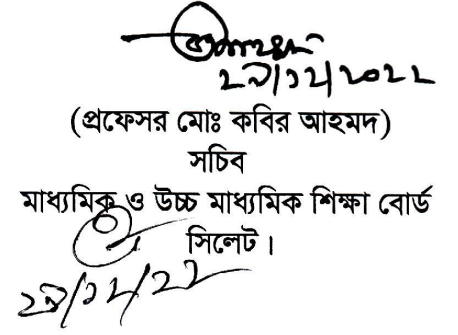 ২৯/১২/২০২২
(প্রফেসর মোঃ কবির আহমদ)
সচিব
মাধ্যমিক ও উচ্চ মাধ্যমিক শিক্ষা বোর্ড
সিলেট।
২৯/১২/২২